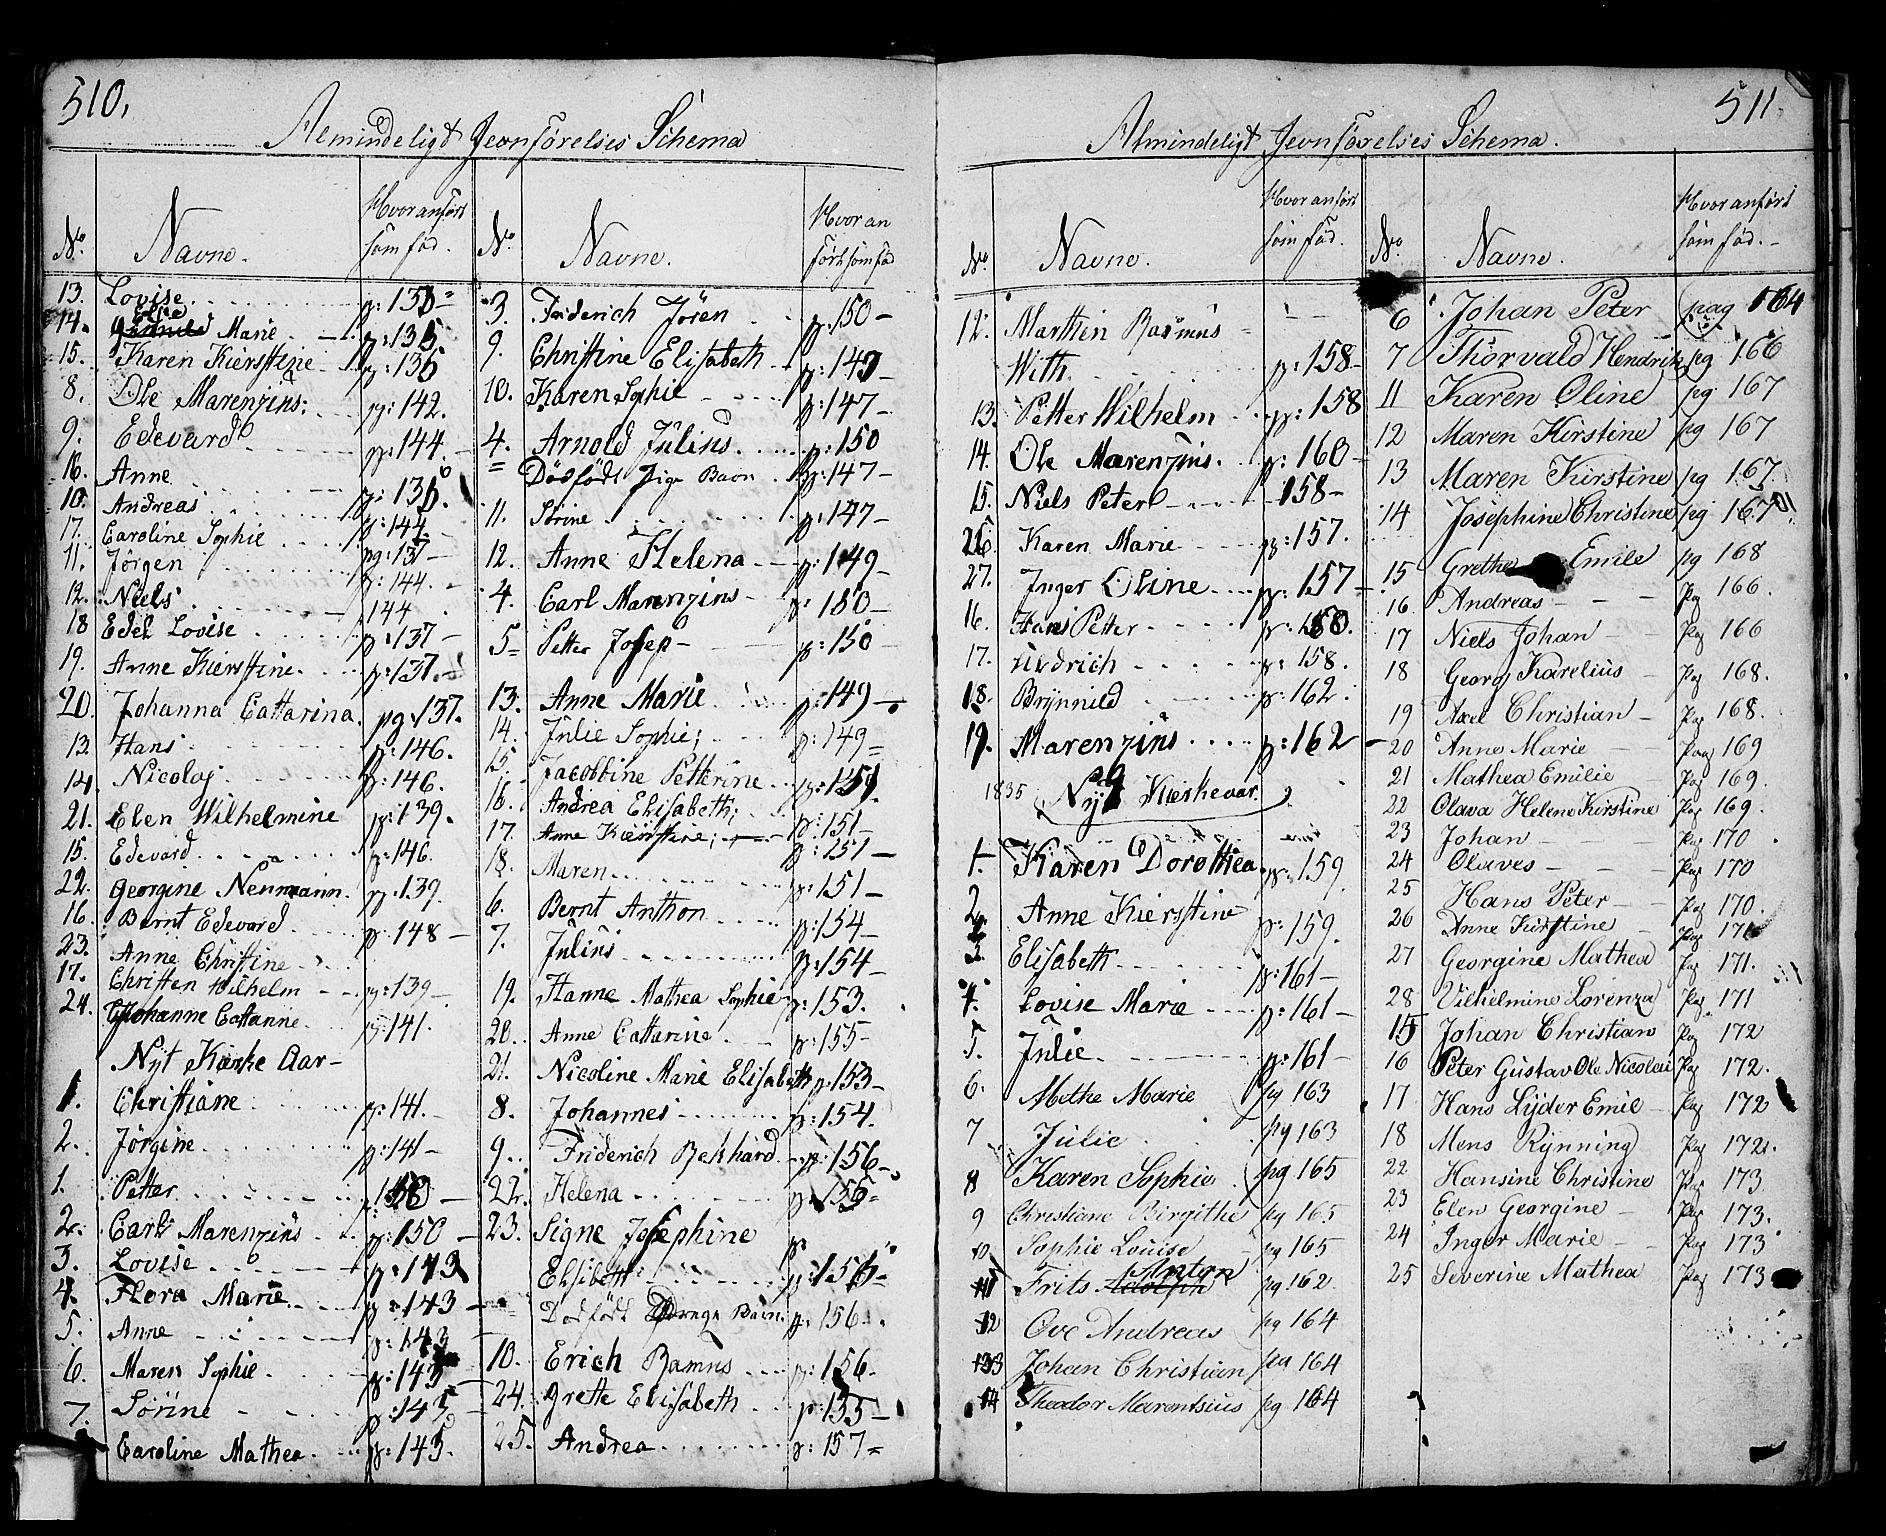 510.
Almindeligt Jevnførelses Schema
No. Navne. Hvor anført som fød.
13. Lovise p: 135
14. Elsse Marie p: 135
15. Karen Kierstine p: 136
8. Ole Marenzius; p: 142.
9. Edevard p: 144.
16. Anne p: 136.
10. Andreas p: 144
17. Caroline Sophie pg: 137
11. Jørgen p: 144.
12. Niels 144
18 Edel Lovise p: 137
19. Anne Kierstine p: 137.
20. Johanna Cattarina pg: 137.
13. Hans p: 146.
14. Nicolaj p: 146.
21. Elen Wilhelmine p: 139.
15. Edevard p: 146.
22. Georgine Neumann p: 139.
16. Bernt Edevard p: 148
23. Anne Christine
17. Christen Wilhelm p: 139
24. Johanne Cattarine p: 141.
Nyt Kierke Aar
1. Christiane p: 141.
2. Jørgine p: 141
1. Petter
2. Carl Marenzius p: 150
3. Lovise p: 143
4. Flora Marie p: 143
5. Anne p: 143
6. Maren Sophie p: 143
7. Sørine p: 145
Caroline Mathea p: 145.
No. Navne. Hvor anført som fød
3. Friderich Jøren p: 150
9. Christine Elisabeth p: 149
10. Karen Sophie p: 147
4. Arnold Julius p: 150
= Dødfødt Pige Barn p: 147
11. Sørine p: 147
12. Anne Helena p: 149
4. Carl Marenzius p: 150
5 Petter Josep p: 150
13. Anne Marie p: 149
14. Julie Sophie; p: 149
15. Jacobbine Petterine p: 151
16. Andrea Elisabeth; p: 151
17. Anne Kierstine; p: 151
18. Maren p: 151
6. Bernt Anthon p: 154
7. Julius p: 154
19. Hanne Mathea Sophie p: 153.
20. Anne Cattarine p: 155
21. Nicoline Marie Elisabeth p: 153
8. Johannes p: 154.
9. Friderich Bekhard p: 156
22. Helena p: 155
23. Signe Josephine p
Elsibett p: 155
Dødfødt Drenge Barn. p: 156.
10. Erich Ramus p: 156.
24. Grette Elisabeth p: 155
25. Andrea p: 157
511.
Almindeligt Jevnførelses Schema.
No. Navne. Hvor anført som fød.
12. Marthin Rasmus
With p: 158
13. Petter Wilhelm p: 158
14. Ole Marenzius p: 160
15. Niels Peter 158
26. Karen Marie p: 157.
27. Inger Oline p: 157
16. Hans Petter p: 160.
17. Uldrich p: 158.
18. Brynnild p: 162.
19. Marenzius p: 162
1835 Nyt Kierkeaar.
1. Karen Dorothea p: 159.
2. Anne Kierstine p: 159.
3. Elisabeth p: 161
4. Lovise Marie p: 161
5. Julie p: 161
6. Methe Marie pg 163
7 Julie pg 163
8 Karen Sophie pg 165
9 Christiane Birgithe pg 165
10 Sophie Louise pg 165
11 Frits Anton pg 162
12 Ove Andreas pg 164
13 Johan Christian pa 164
14 Theodor Marentsius pg 164
No Navne. Hvor anført som fød.
6 Johan Peter pag 164
7 Thorvald Hendrich pg 166
11 Karen Oline pg 167
12 Maren Kirstine pg 167
13 Maren Kirstine pg 167.
14 Josephine Christine pg 167
15 Grethe Emile pg 168
16 Andreas Pag 166.
17 Niels Johan Pag 166
18 Georg Karelius Pag 168.
19 Axel Christian Pag 168.
20 Anne Marie Paag 169
21 Mathea Emilie Pag 169.
22 Olava Helene Kirstine Pag 169.
23 Johan Pag 170
24 Olaves Pag 170
25 Hans Peter Pag 170.
26 Anne Kirstine Pag 171
27 Georgine Mathea Pag 171.
28 Vilhelmine Lorenza Pag 171
15 Johan Christian Pag 172
16 Peter Gustav Ole Nicolai Pag 172.
17 Hans Lyder Emil Pag 172
18 Mons Rynning Pag 172.
22 Hansine Christine Pag 173
23 Elen Georgine Pag 173.
24 Inger Marie Pag 173
25 Severine Mathea Pag 173